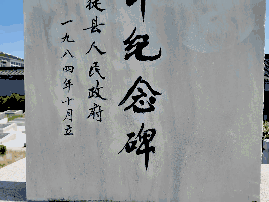 纪念碑
徒县人民政府
一九八四年十月立